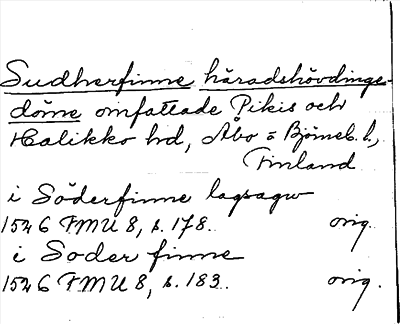 Sudherfinne häradshövdinge-
döme omfattade Pikis och
Halikko hd, Åbo o Björneb. l.,
Finland
i Söderfinne lagsagu
1546 FMU 8, s. 178. orig.
i Soder finne
1546 FMU 8, s. 183. orig.